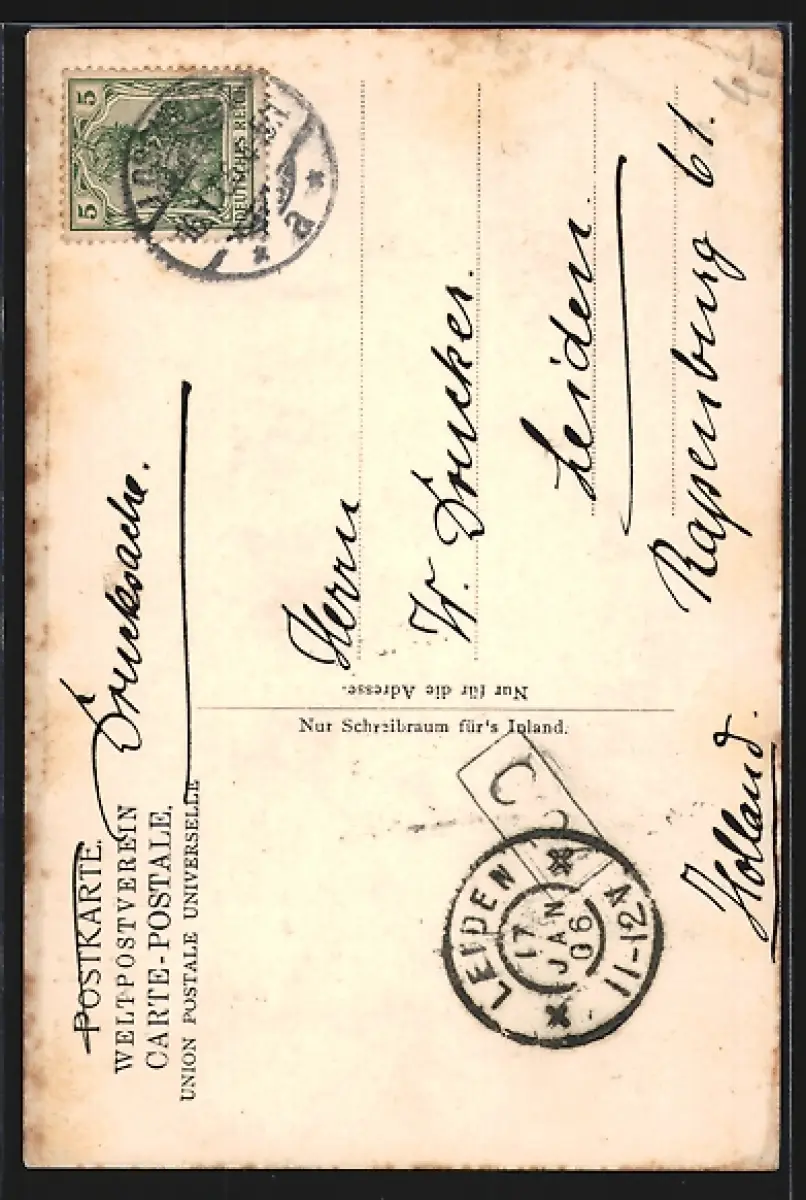 POSTKARTE.
WELTPOSTVEREIN
CARTE-POSTALE.
UNION POSTALE UNIVERSELLE
Drucksache.
5 5
DEUTSCHES REICH
Nur Schreibraum für's Inland.
Nur für die Adresse.
Herrn
W. Drucker.
Leiden.
Rapenburg 61.
Holland.
LEIDEN
17 JAN 06
11-12V